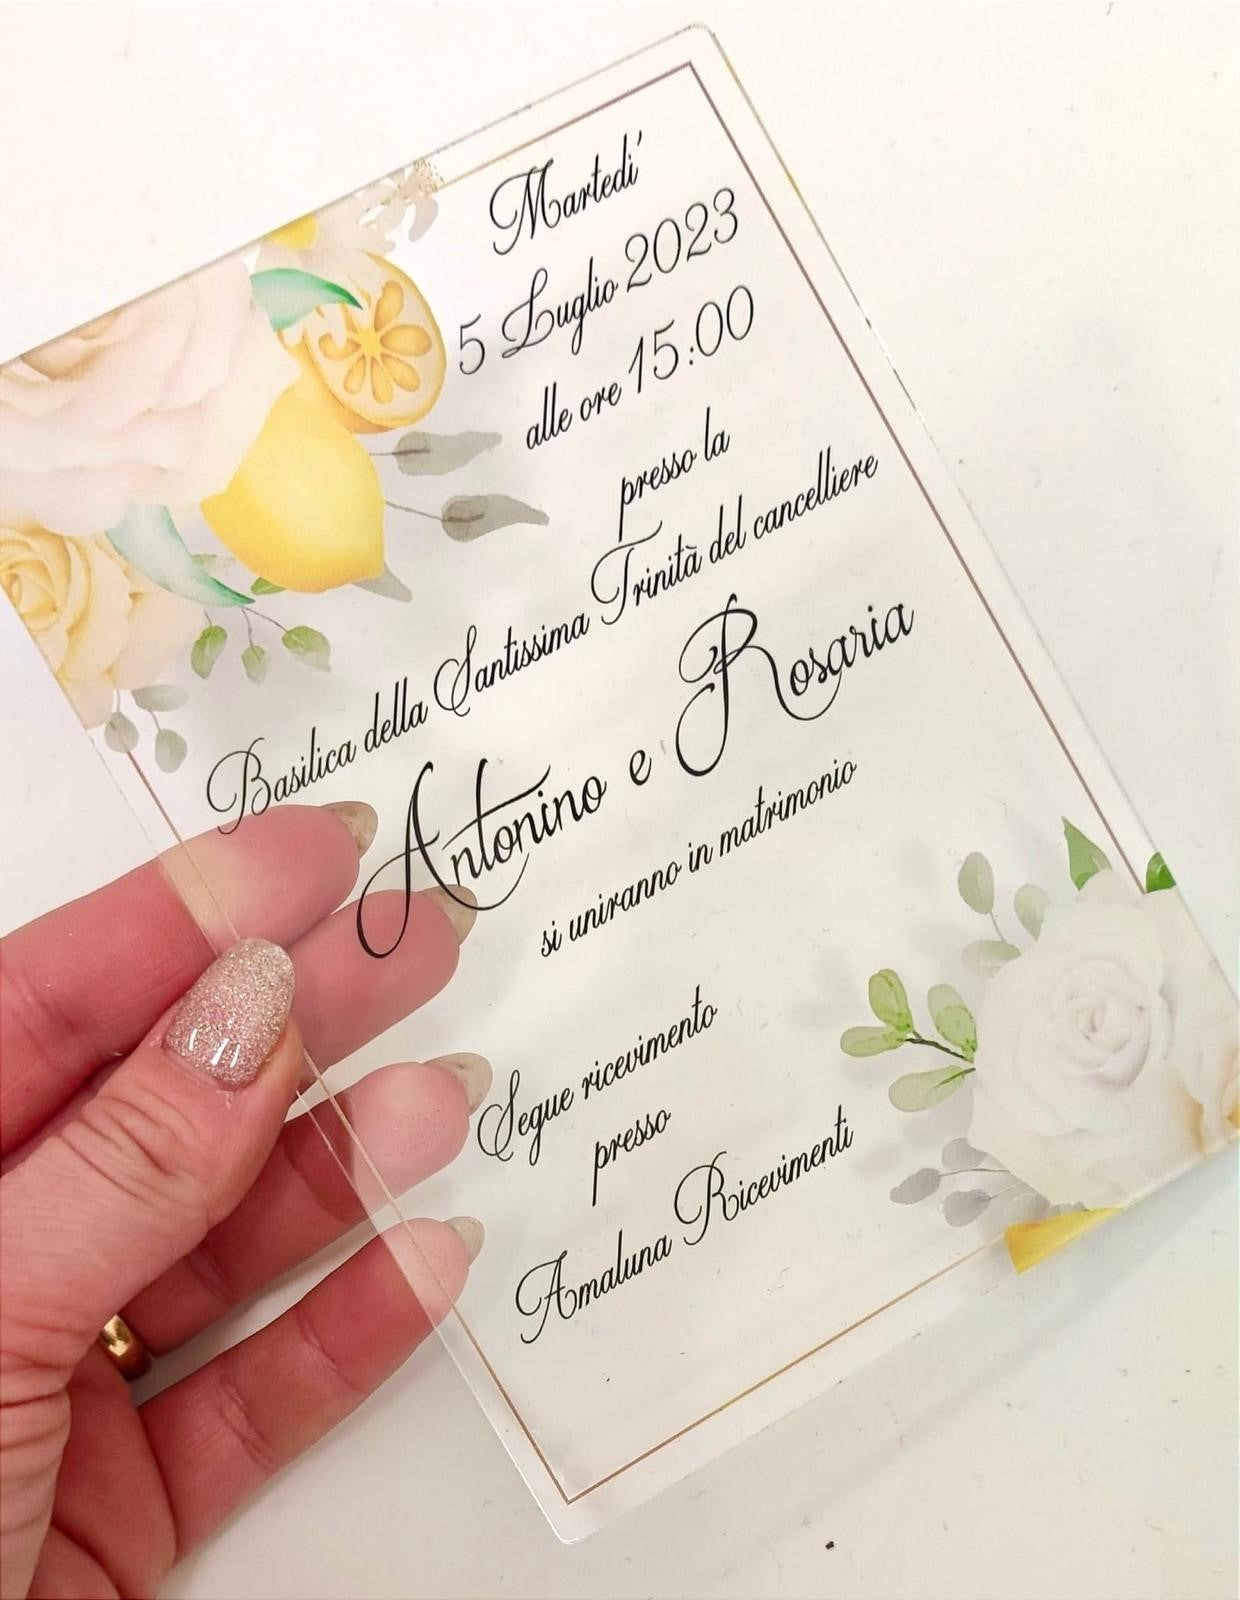 Martedi'
5 Luglio 2023
alle ore 15:00
presso la
Basilica della Santissima Trinità del cancelliere
Antonino e Rosaria
si uniranno in matrimonio
Segue ricevimento
presso
Amaluna Ricevimenti